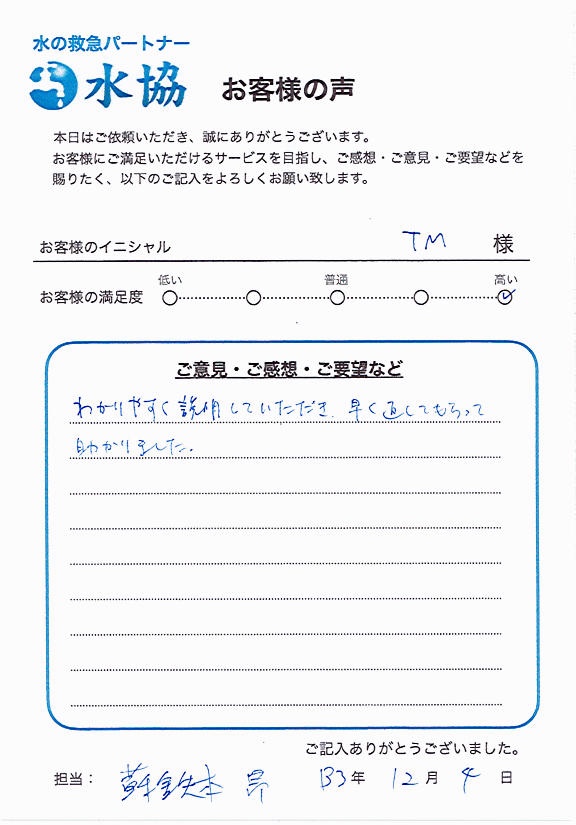 水の救急パートナー
水協 お客様の声
本日はご依頼いただき、誠にありがとうございます。
お客様にご満足いただけるサービスを目指し、ご感想・ご意見・ご要望などを
賜りたく、以下のご記入をよろしくお願い致します。
お客様のイニシャル TM 様
低い 普通 高い
お客様の満足度
ご意見・ご感想・ご要望など
わかりやすく説明していただき、早く直してもらって
助かりました。
ご記入ありがとうございました。
担当： 昴 年 12月 4日